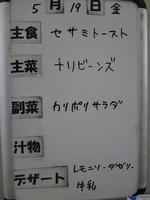 5月19日金
主食 セサミトースト
主菜 チリビーンズ
副菜 カリポリサラダ
汁物
デザート レモンゼリー
牛乳